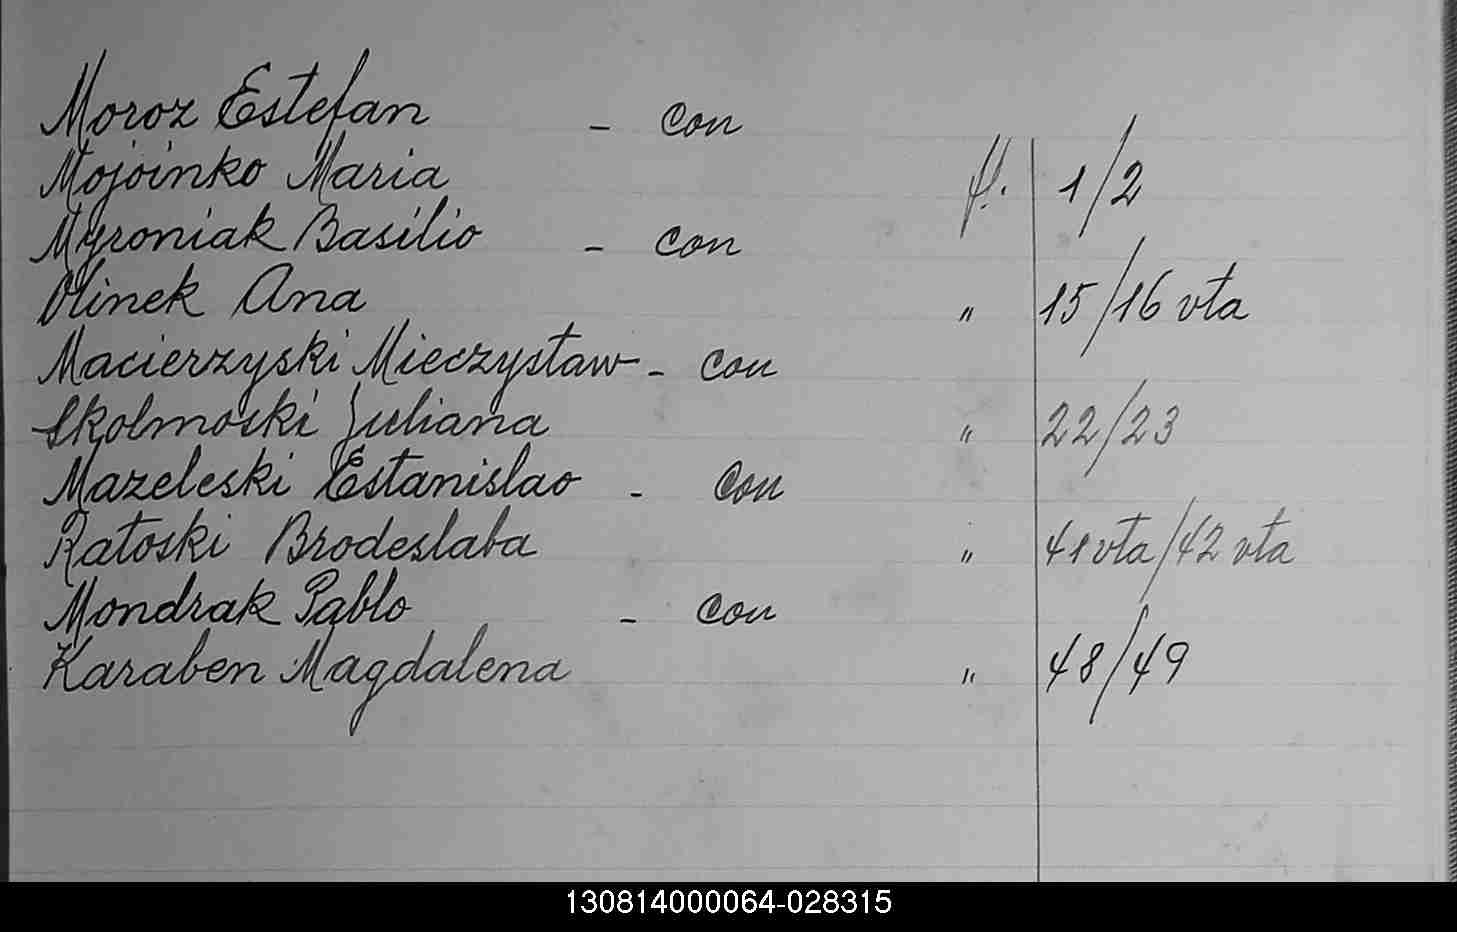 Moroz Estefan - con
Mojoinko Maria fl. 1/2
Myroniak Basilio - con
Olinek Ana " 15/16 vta
Macierzyski Mieczystaw - con
Skolmoski Juliana " 22/23
Mazeleski Estanislao - con
Ratoski Brodeslaba " 41 vta/42 vta
Mondrak Pablo - con
Karaben Magdalena " 48/49
130814000064-028315